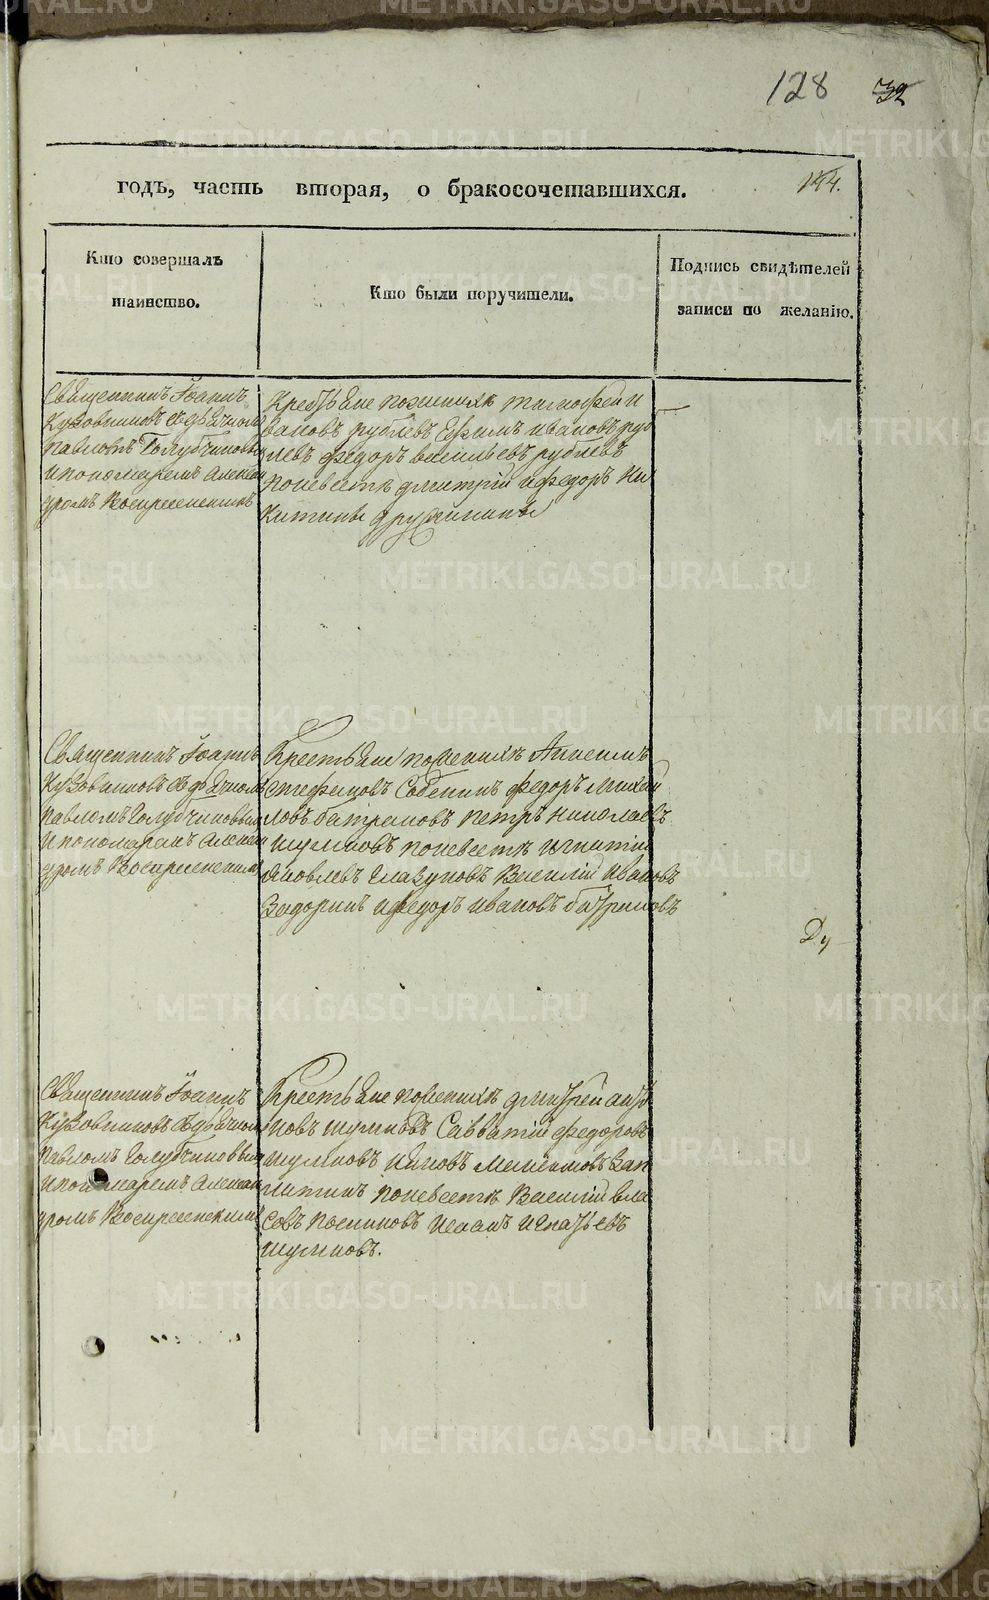 128 32
годъ, часть вторая, о бракосочетавшихся. 144.
Кто совершалъ
таинство.
Кто были поручители.
Подпись свидѣтелей
записи по желанію.
Священникъ Іоаннъ
Кузовниковъ съ дьячкомъ
Павломъ Голубчиковымъ
и пономаремъ Алексан
дромъ Воскресенскимъ
Крестьяне по женихѣ Тимофей И
вановъ Рублевъ Ефимъ Ивановъ Руб
левъ Федоръ Васильевъ Рублевъ
по невестѣ Дмитрій и Федоръ Ни
китины Дружинины
Священникъ Іоаннъ
Кузовниковъ съ дьячкомъ
Павломъ Голубчиковымъ
и пономаремъ Алексан
дромъ Воскресенскимъ
Крестьяне по женихѣ
Стефановъ Федоръ Михай
ловъ Петръ Николаевъ
Шумковъ по невестѣ Игнатій
Яковлевъ Глазуновъ Василій Ивановъ
Задоринъ и Федоръ Ивановъ
Священникъ Іоаннъ
Кузовниковъ съ дьячкомъ
Павломъ Голубчиковымъ
и пономаремъ Алексан
дромъ Воскресенскимъ
Крестьяне по женихѣ Дмитрій
новъ Шумковъ Савватій Федоровъ
Шумковъ
по невестѣ Василій Вла
совъ Иванъ Игнатьевъ
Шумковъ.